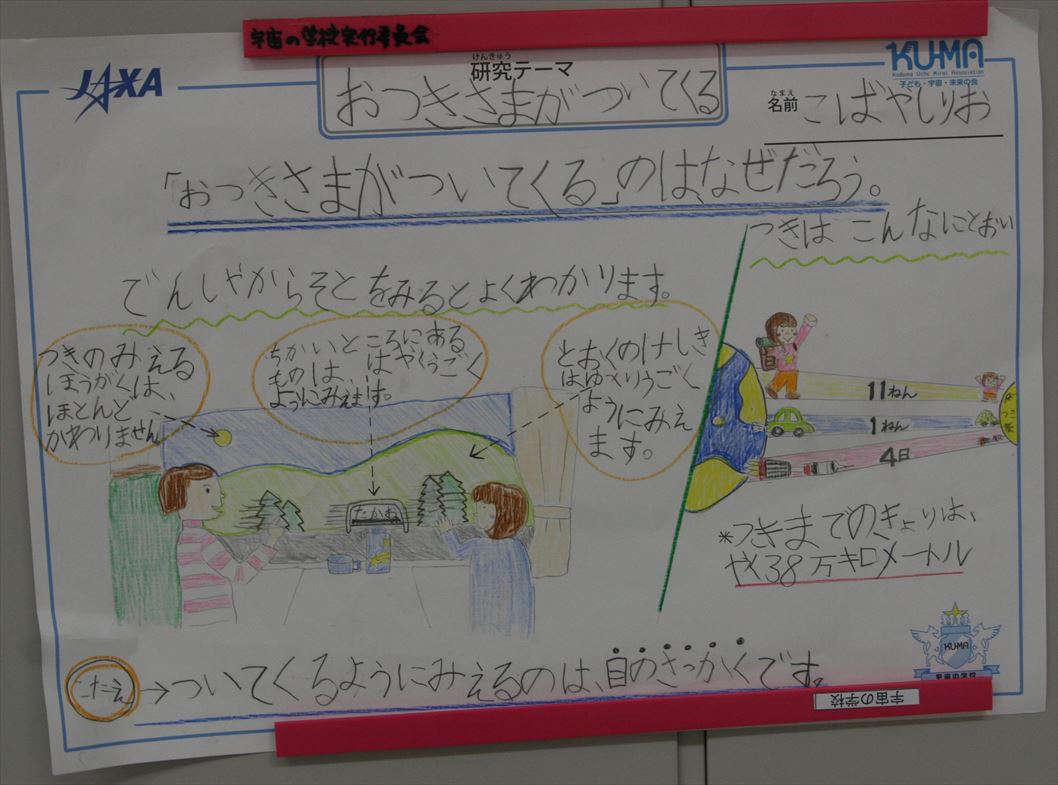 宇宙の学校実行委員会
JAXA
けんきゅう
研究テーマ
おつきさまがついてくる
KUMA
Kodomo Uchu Mirai Association
子ども・宇宙・未来の会
なまえ
名前 こばやしりお
「おつきさまがついてくる」のは、なぜだろう。
でんしゃからそとをみるとよくわかります。
つきのみえる
ほうがくは、
ほとんど
かわりません
ちかいところにある
ものは、はやくうごく
ようにみえます。
とおくのけしき
はゆっくりうごく
ようにみえ
ます。
たかね
つきは こんなにとおい
11ねん
1ねん
4日
*つきまでのきょりは、
やく38万キロメートル
こたえ→ついてくるようにみえるのは、目のさっかくです。
KUMA
宇宙の学校
宇宙の学校